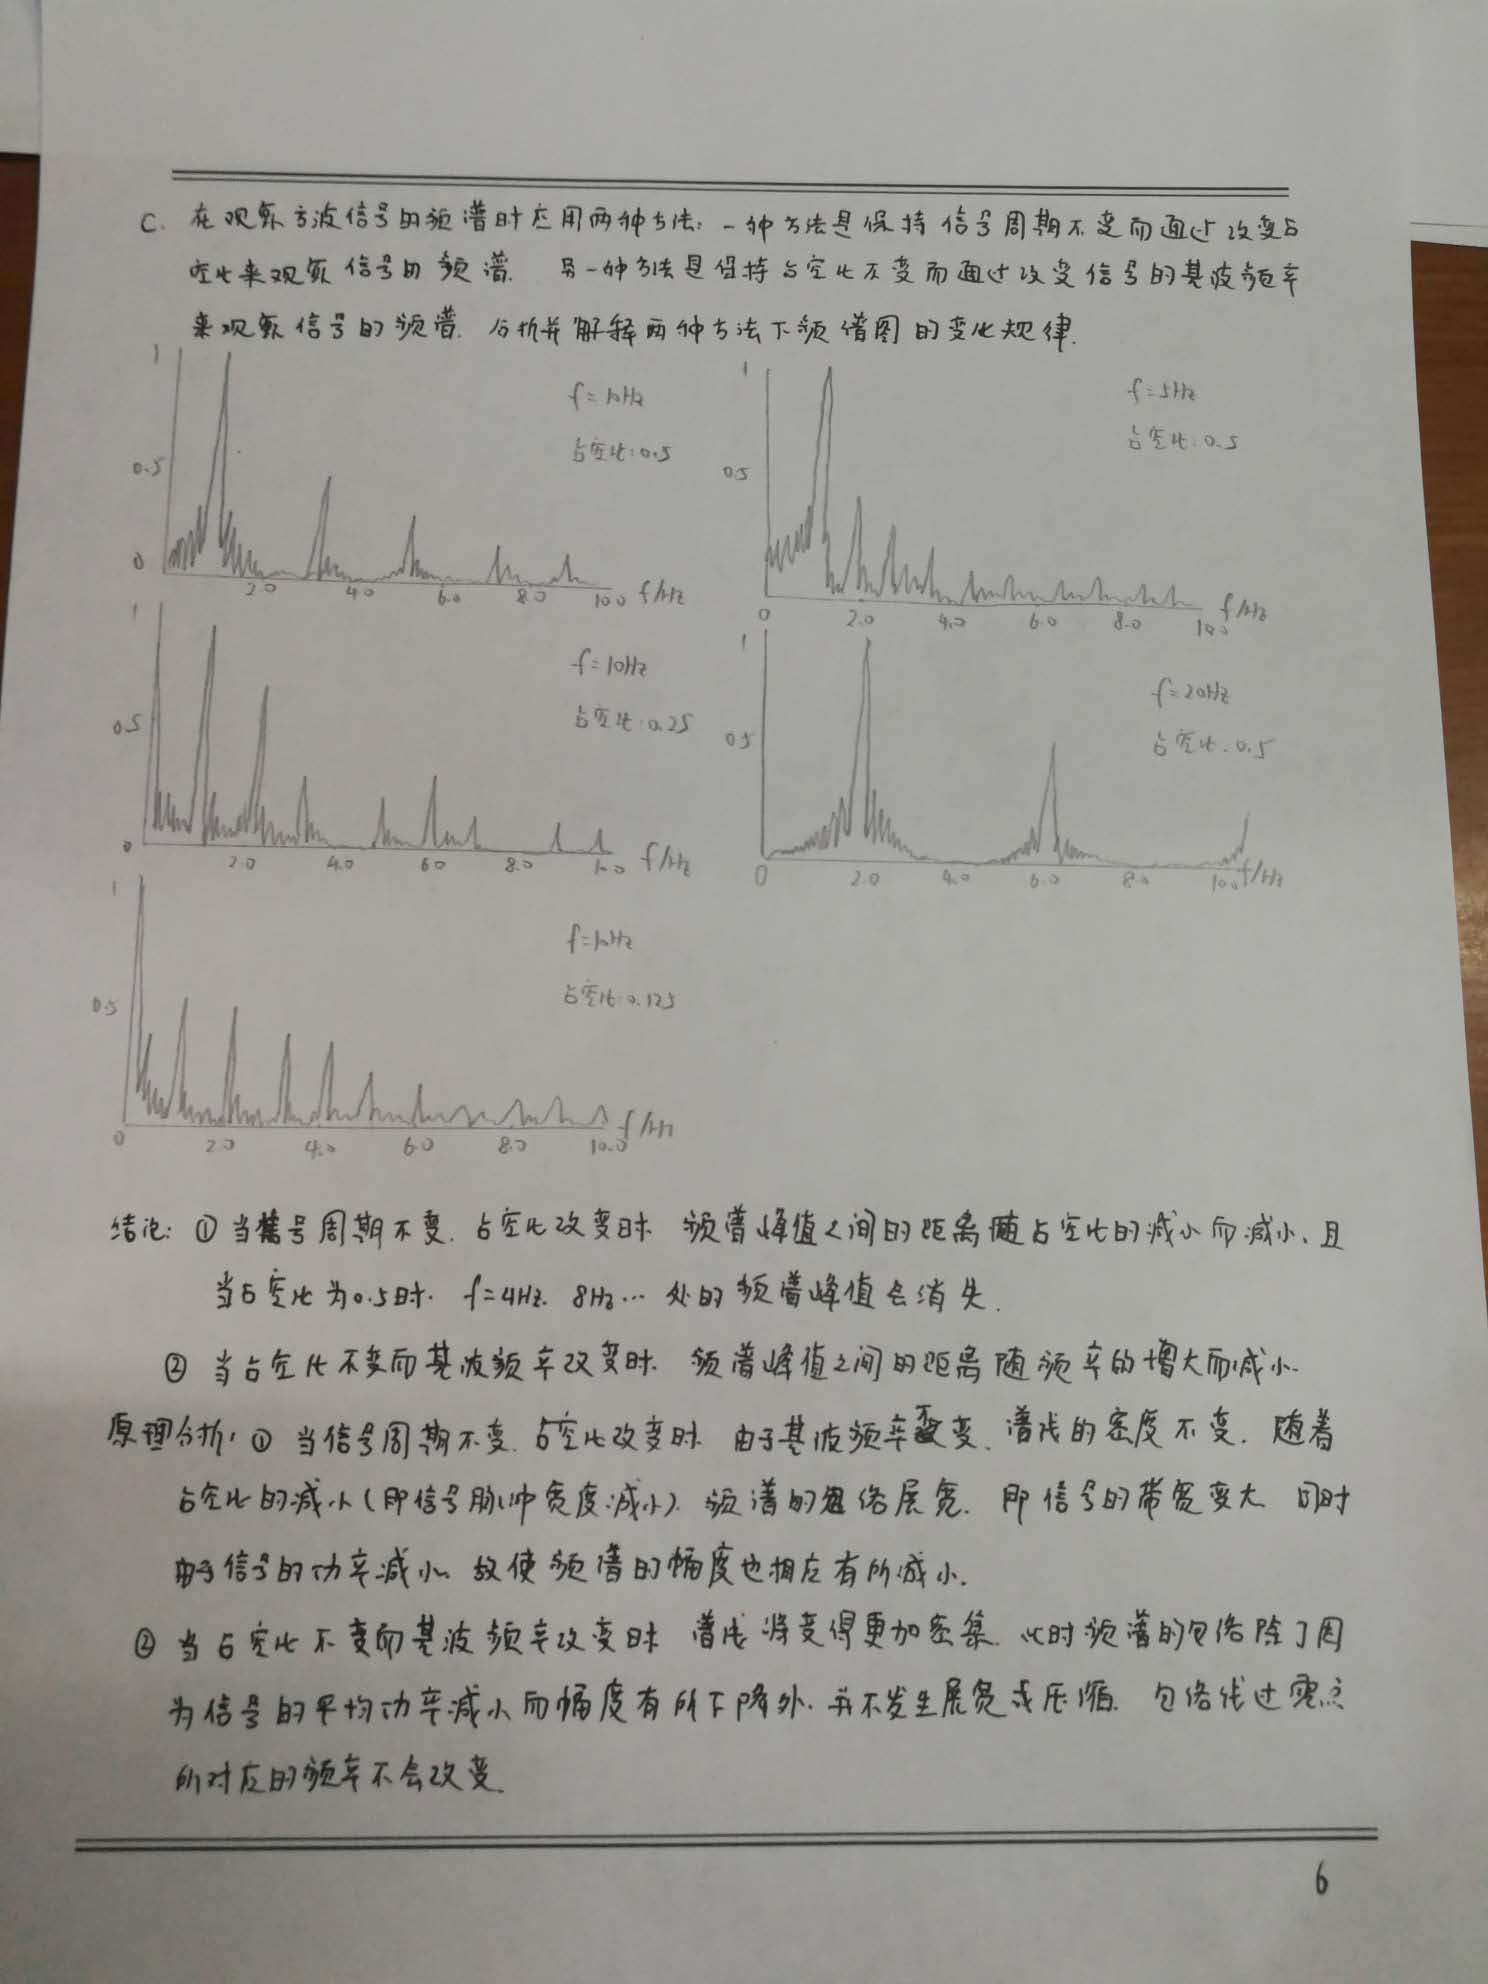 C. 在观察方波信号的频谱时应用两种方法：一种方法是保持信号周期不变而通过改变占
空比来观察信号的频谱. 另一种方法是保持占空比不变而通过改变信号的基波频率
来观察信号的频谱. 分析并解释两种方法下频谱图的变化规律.
1
0.5
0
2.0 4.0 6.0 8.0 10.0 f/Hz
f=10Hz
占空比:0.5
1
0.5
0 2.0 4.0 6.0 8.0 10.0 f/Hz
f=5Hz
占空比:0.5
1
0.5
0
2.0 4.0 6.0 8.0 10.0 f/Hz
f=10Hz
占空比:0.25
1
0.5
0 2.0 4.0 6.0 8.0 10.0 f/Hz
f=20Hz
占空比:0.5
1
0.5
0 2.0 4.0 6.0 8.0 10.0 f/Hz
f=10Hz
占空比:0.125
结论: ① 当信号周期不变. 占空比改变时. 频谱峰值之间的距离随占空比的减小而减小、且
当占空比为0.5时. f=4Hz. 8Hz… 处的频谱峰值会消失.
② 当占空比不变而基波频率改变时. 频谱峰值之间的距离随频率的增大而减小.
原理分析: ① 当信号周期不变. 占空比改变时. 由于基波频率不变、谱线的密度不变. 随着
占空比的减小(即信号脉冲宽度减小). 频谱的包络展宽. 即信号的带宽变大 同时
由于信号的功率减小、故使频谱的幅度也相应有所减小.
② 当占空比不变而基波频率改变时 谱线将变得更加密集. 此时频谱的包络除了因
为信号的平均功率减小而幅度有所下降外. 并不发生展宽或压缩. 包络线过零点
所对应的频率不会改变.
6